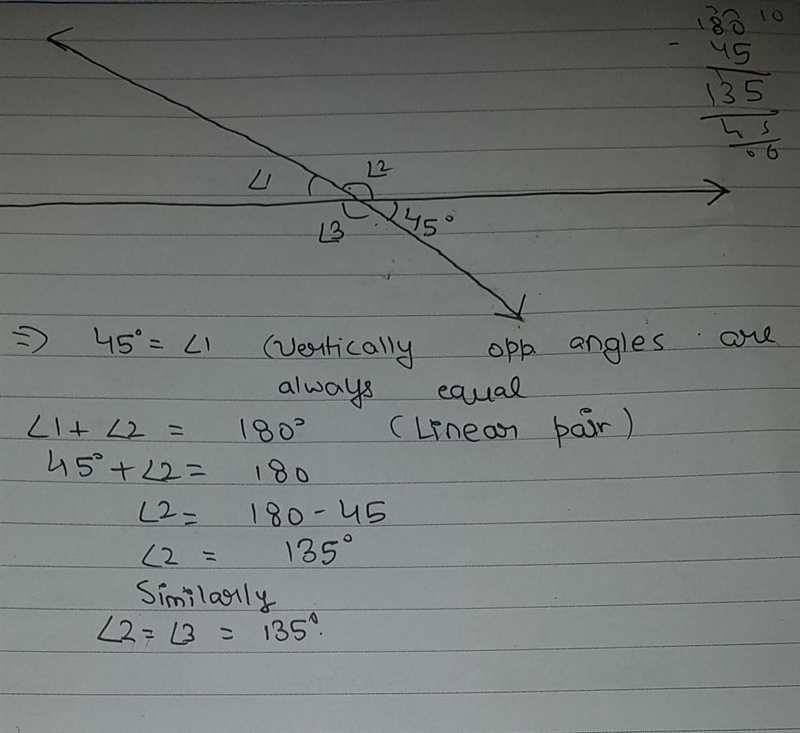 180 10
- 45
135
45
00
∠1
∠2
∠3
45°
⇒ 45° = ∠1 (Vertically opp. angles are
always equal
∠1 + ∠2 = 180° (Linear pair)
45° + ∠2 = 180
∠2 = 180 - 45
∠2 = 135°
Similarly
∠2 = ∠3 = 135°.